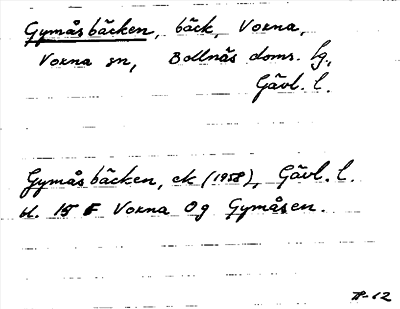 Gymåsbäcken, bäck, Voxna,
Voxna sn, Bollnäs doms. lg,
Gävl. l.
Gymåsbäcken, ek (1958), Gävl. l.
bl. 15 F Voxna Og Gymåsen.
12